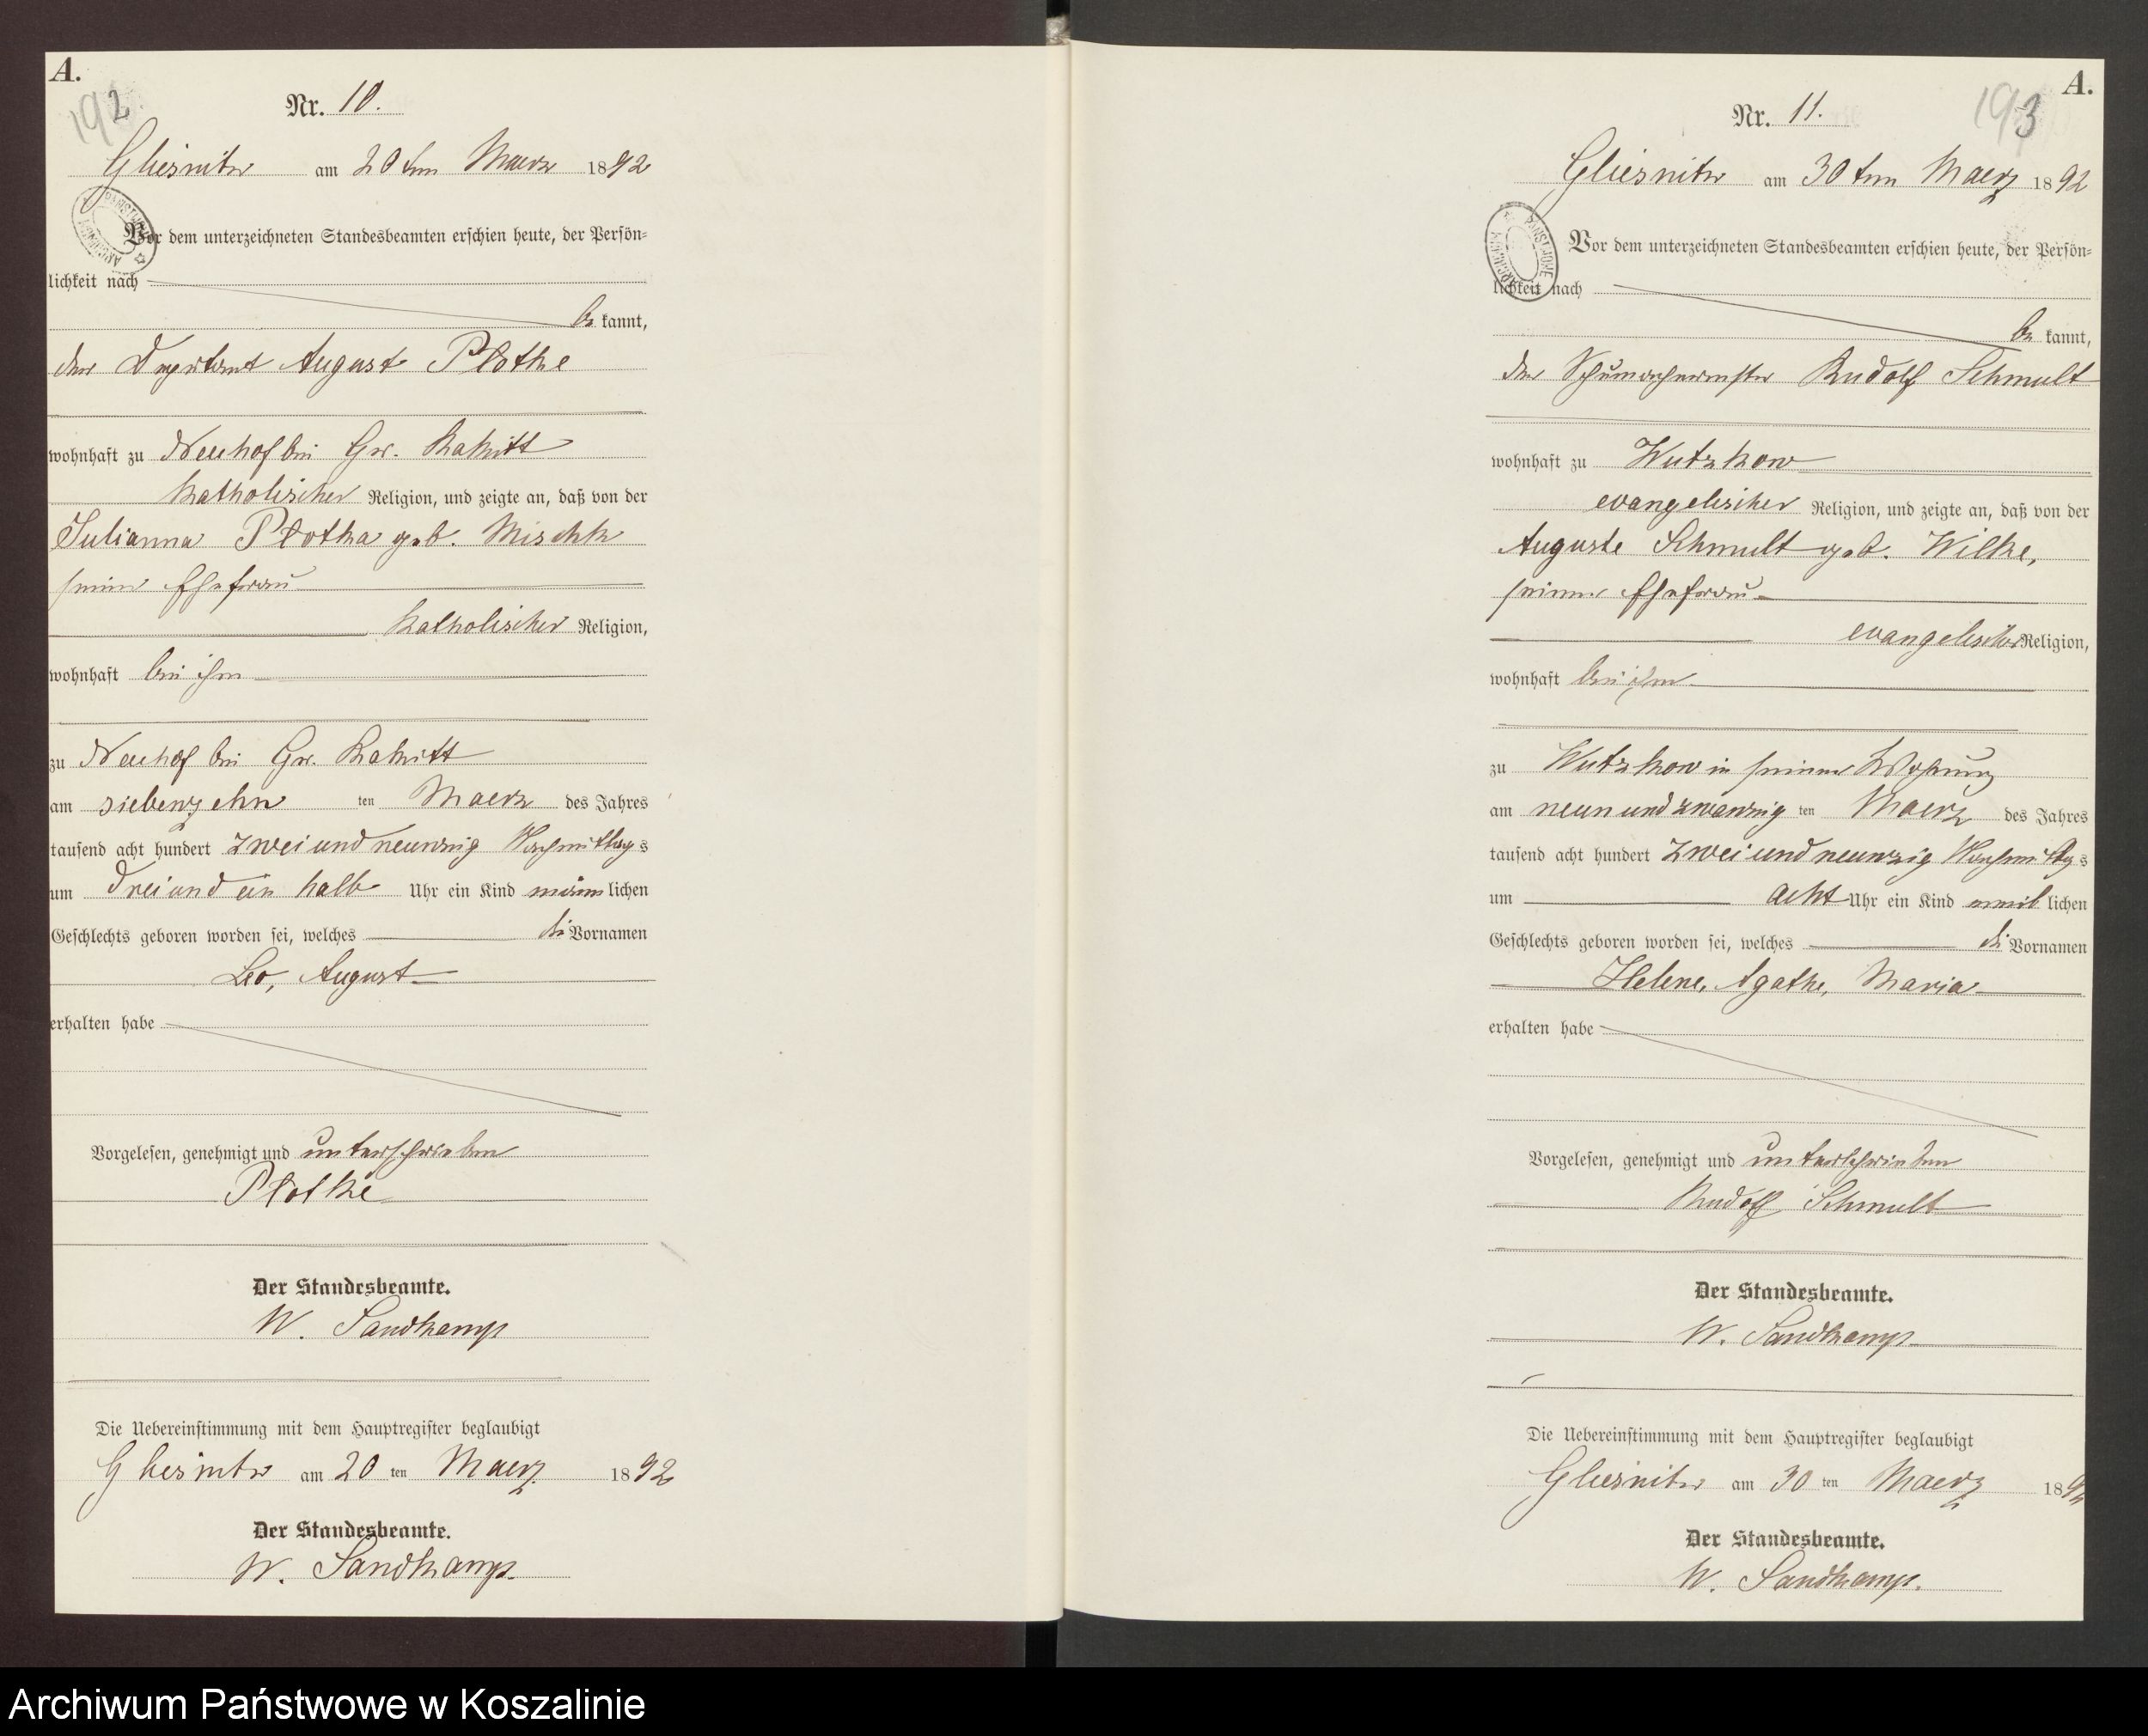 A.
192
Nr. 10.
Gliesnitz am 20ten Maerz 1892
Vor dem unterzeichneten Standesbeamten erschien heute, der Persön=
lichkeit nach
be kannt,
der August Plothe
wohnhaft zu Neuhof bei Gr. Rakitt
katholischer Religion, und zeigte an, daß von der
Julianna Plotha geb. Mischk
seiner Ehefrau
katholischer Religion,
wohnhaft bei ihm
zu Neuhof bei Gr. Rakitt
am siebenzehn ten Maerz des Jahres
tausend acht hundert zwei und neunzig Nachmittags
um drei und ein halb Uhr ein Kind männlichen
Geschlechts geboren worden sei, welches die Vornamen
Leo, August
erhalten habe
Vorgelesen, genehmigt und unterschrieben
Plothe
Der Standesbeamte.
W. Sandkamp
Die Uebereinstimmung mit dem Hauptregister beglaubigt
Gliesnitz am 20 ten Maerz 1892
Der Standesbeamte.
W. Sandkamp.
A.
193
Nr. 11.
Gliesnitz am 30ten Maerz 1892
ARCHIWUM PAŃSTWOWE
Vor dem unterzeichneten Standesbeamten erschien heute, der Persön=
lichkeit nach
be kannt,
der Schumachermeister Rudolf Schmult
wohnhaft zu Wutzkow
evangelischer Religion, und zeigte an, daß von der
Auguste Schmult geb. Wilke,
seiner Ehefrau
evangelischer Religion,
wohnhaft bei ihm
zu Wutzkow in seiner Wohnung
am neun und zwanzig ten Maerz des Jahres
tausend acht hundert zwei und neunzig Nachmittags
um acht Uhr ein Kind weib lichen
Geschlechts geboren worden sei, welches die Vornamen
Helene, Agathe, Maria
erhalten habe
Vorgelesen, genehmigt und unterschrieben
Rudolf Schmult
Der Standesbeamte.
W. Sandkamp
Die Uebereinstimmung mit dem Hauptregister beglaubigt
Gliesnitz am 30 ten Maerz 1892
Der Standesbeamte.
W. Sandkamp.
Archiwum Państwowe w Koszalinie